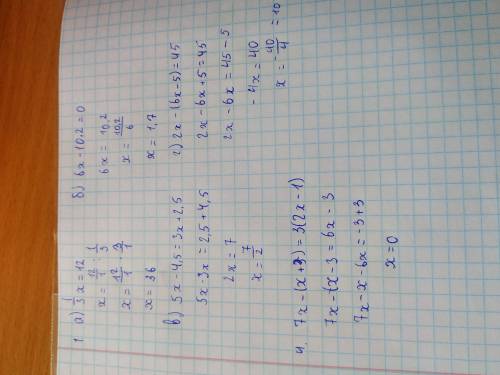 1 а) 1/3 x = 12
x = 12/1 : 1/3
x = 12/1 · 3/1
x = 36
б) 6x - 10,2 = 0
6x = 10,2
x = 10,2/6
x = 1,7
в) 5x - 4,5 = 3x + 2,5
5x - 3x = 2,5 + 4,5
2x = 7
x = 7/2
г) 2x - (6x - 5) = 45
2x - 6x + 5 = 45
2x - 6x = 45 - 5
- 4x = 40
x = - 40/4 = 10
4. 7x - (x + 3) = 3(2x - 1)
7x - (x - 3 = 6x - 3
7x - x - 6x = -3 + 3
x = 0